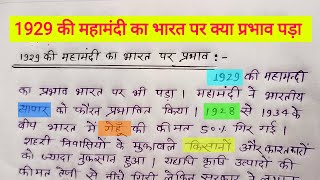 1929 की महामंदी का भारत पर क्या प्रभाव पड़ा
1929 की महामंदी का भारत पर प्रभाव :-
1929 की महामन्दी
का प्रभाव भारत पर भी पड़ा। महामंदी ने भारतीय
व्यापार को फौरन प्रभावित किया। 1928 से 1934 के
बीच भारत में गेहूँ की कीमत 50% गिर गई।
शहरी निवासियों के मुकाबले किसानों और काश्तकारों
को ज्यादा नुकसान हुआ। यद्यपि कृषि उत्पादों की
कीमत तेजी से नीचे गिरी लेकिन सरकार ने